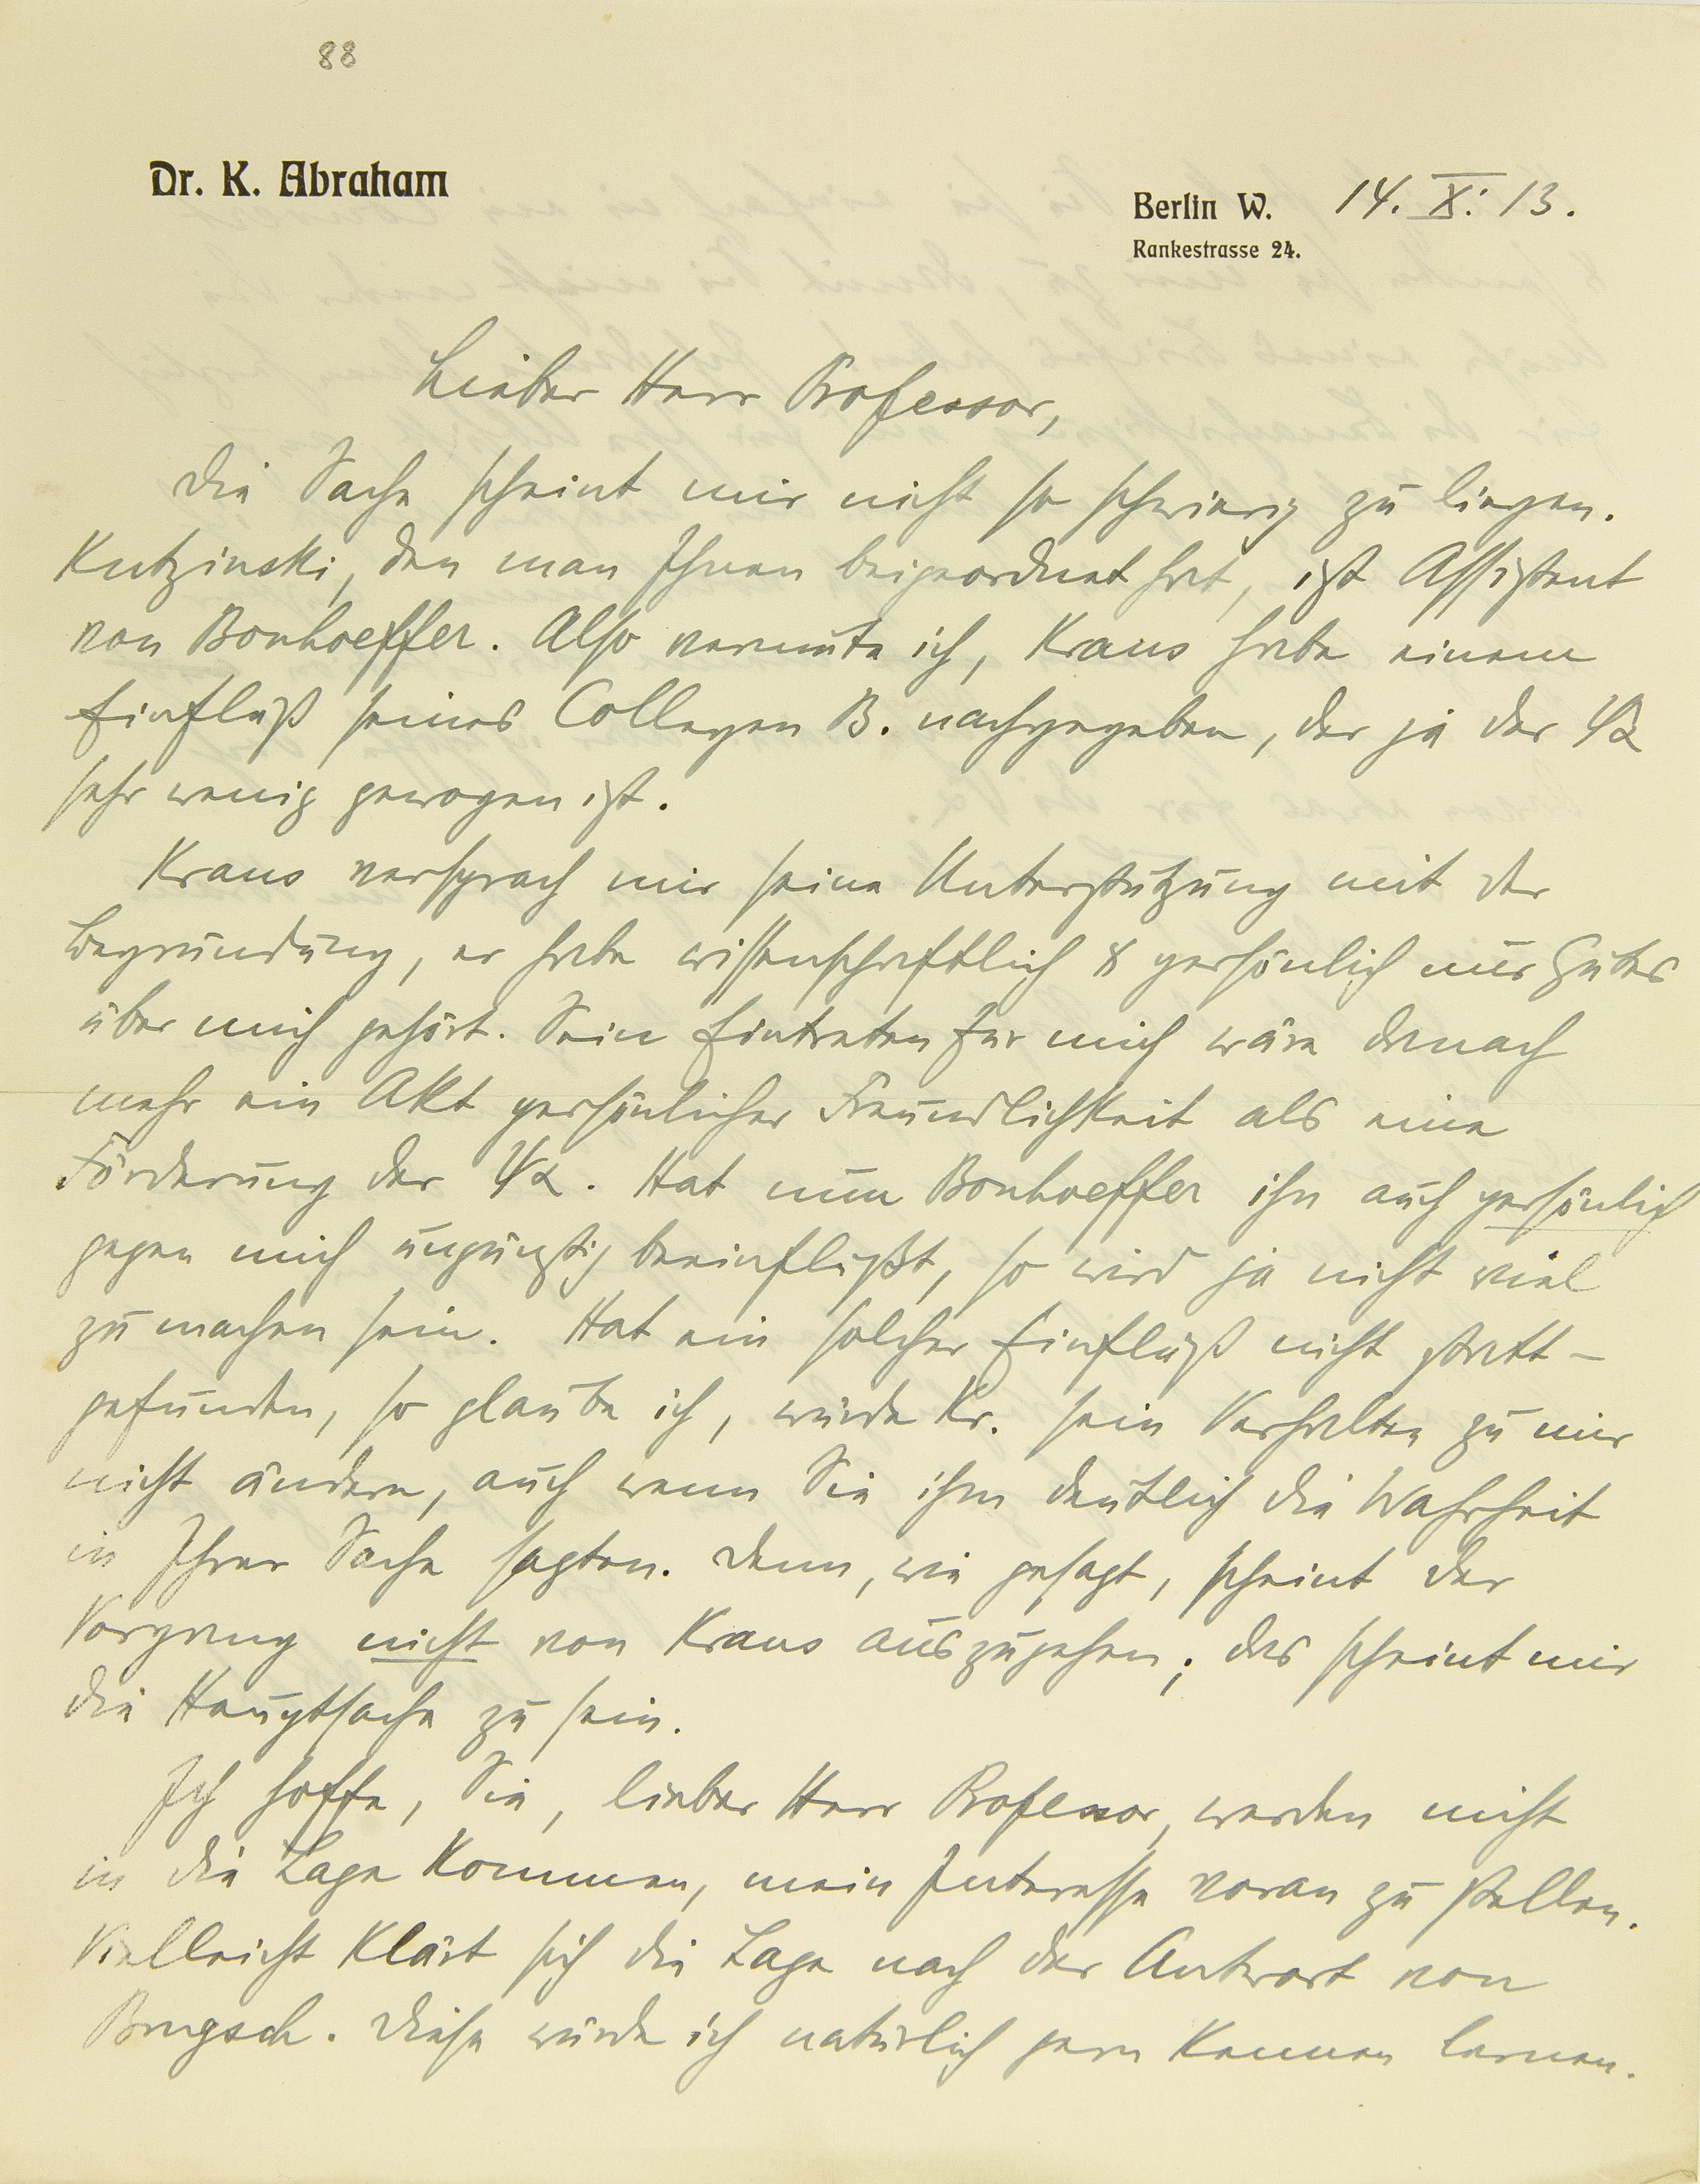 88
Dr. K. Abraham
Berlin W. 14. X. 13.
Rankestrasse 24.
Lieber Herr Professor,
Die Sache scheint mir nicht so schwierig zu liegen.
Kutzinski, den man Ihnen beigeordnet hat, ist Assistent
von Bonhoeffer. Also vermute ich, Kraus habe einem
Einfluß seines Collegen B. nachgegeben, der ja der ΨΑ
sehr wenig gewogen ist.
Kraus versprach mir seine Unterstützung mit der
Begründung, er habe wissenschaftlich & persönlich nur Gutes
über mich gehört. Sein Eintreten für mich wäre danach
mehr ein Akt persönlicher Freundlichkeit als eine
Förderung der ΨΑ. Hat nun Bonhoeffer ihn auch persönlich
gegen mich ungünstig beeinflußt, so wird ja nicht viel
zu machen sein. Hat ein solcher Einfluß nicht statt-
gefunden, so glaube ich, würde Kr. sein Verhalten zu mir
nicht ändern, auch wenn Sie ihm deutlich die Wahrheit
in Ihrer Sache sagten. Denn, wie gesagt, scheint der
Vorgang nicht von Kraus auszugehen; das scheint mir
die Hauptsache zu sein.
Ich hoffe, Sie, lieber Herr Professor, werden nicht
in die Lage kommen, mein Interesse voran zu stellen.
Vielleicht klärt sich die Lage nach der Antwort von
Brugsch. Diese würde ich natürlich gern kennen lernen.